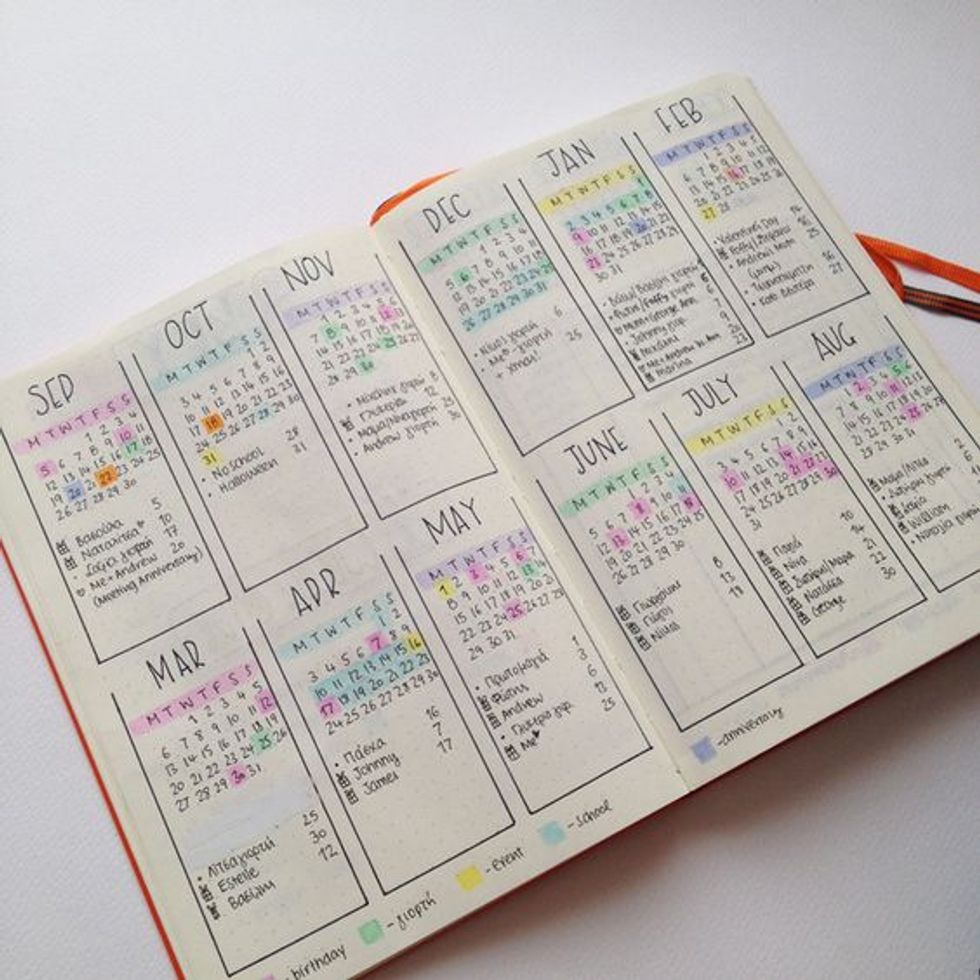 SEP
M T W T F S S
1 2 3 4
5 6 7 8 9 10 11
12 13 14 15 16 17 18
19 20 21 22 23 24 25
26 27 28 29 30
Βασούλα 5
Ναταλίτσα 10
Σοφία γιορτή 17
Me + Andrew 20
(Meeting Anniversary)
OCT
M T W T F S S
1 2
3 4 5 6 7 8 9
10 11 12 13 14 15 16
17 18 19 20 21 22 23
24 25 26 27 28 29 30
31
No school 28
Halloween 31
NOV
M T W T F S S
1 2 3 4 5 6
7 8 9 10 11 12 13
14 15 16 17 18 19 20
21 22 23 24 25 26 27
28 29 30
8
Γλυκερία 12
25
Andrew γιορτή 30
DEC
M T W T F S S
1 2 3 4
5 6 7 8 9 10 11
12 13 14 15 16 17 18
19 20 21 22 23 24 25
26 27 28 29 30 31
Νίκος γιορτή 6
Me - γιορτή
+ Xmas! 25
JAN
M T W T F S S
1
2 3 4 5 6 7 8
9 10 11 12 13 14 15
16 17 18 19 20 21 22
23 24 25 26 27 28 29
30 31
Mum + George Ann.
Johnny γιορ.
Me + Andrew
Marina 23
FEB
M T W T F S S
1 2 3 4 5
6 7 8 9 10 11 12
13 14 15 16 17 18 19
20 21 22 23 24 25 26
27 28
Valentine's Day 14
Andrew's Mum 25
Τσικνοπέμπτη 16
Καθ. Δευτέρα 27
MAR
M T W T F S S
1 2 3 4 5
6 7 8 9 10 11 12
13 14 15 16 17 18 19
20 21 22 23 24 25 26
27 28 29 30 31
Λίτσα γιορτή 25
Estelle 30
Βασίλης 12
APR
M T W T F S S
1 2
3 4 5 6 7 8 9
10 11 12 13 14 15 16
17 18 19 20 21 22 23
24 25 26 27 28 29 30
Πάσχα 16
Johnny 7
James 17
MAY
M T W T F S S
1 2 3 4 5 6 7
8 9 10 11 12 13 14
15 16 17 18 19 20 21
22 23 24 25 26 27 28
29 30 31
Πρωτομαγιά 1
Φώτης 3
Andrew 6
Γλυκερία γιορ. 13
Me 25
JUNE
M T W T F S S
1 2 3 4
5 6 7 8 9 10 11
12 13 14 15 16 17 18
19 20 21 22 23 24 25
26 27 28 29 30
8
13
18
JULY
M T W T F S S
1 2
3 4 5 6 7 8 9
10 11 12 13 14 15 16
17 18 19 20 21 22 23
24 25 26 27 28 29 30
31
10
Νίνα 14
21
Νατάσσα 22
George 30
AUG
M T W T F S S
1 2 3 4 5 6
7 8 9
14 15 16
21 22 23
28 29 30 31
Μαμά/Λίτσα 2
Σωτήρη γιορτή 6
Σοφία
William
Ναταλία
- birthday
- γιορτή
- event
- school
- anniversary